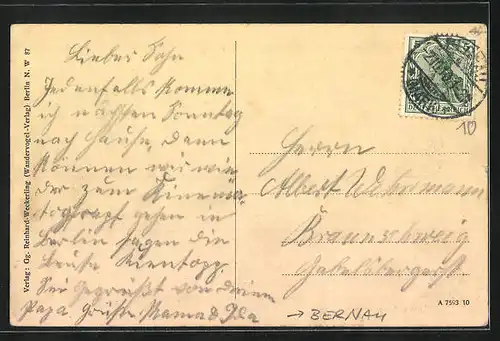 Lieber Sohn
Jedenfalls komme
ich nächsten Sonntag
nach Hause, dann
können wir wie
der zum Kinema
tograph gehen in
Berlin sagen die
Leute Kientopp.
Sei gegrüßt von deinem
Papa Grüße Mama & Ida
Herrn
Albert
Braunschweig
Gabelsbergerst
Verlag: Og. Reinhard-Weckerling (Wandervogel-Verlag) Berlin N. W 87
A 7593 10
→ BERNAU
10